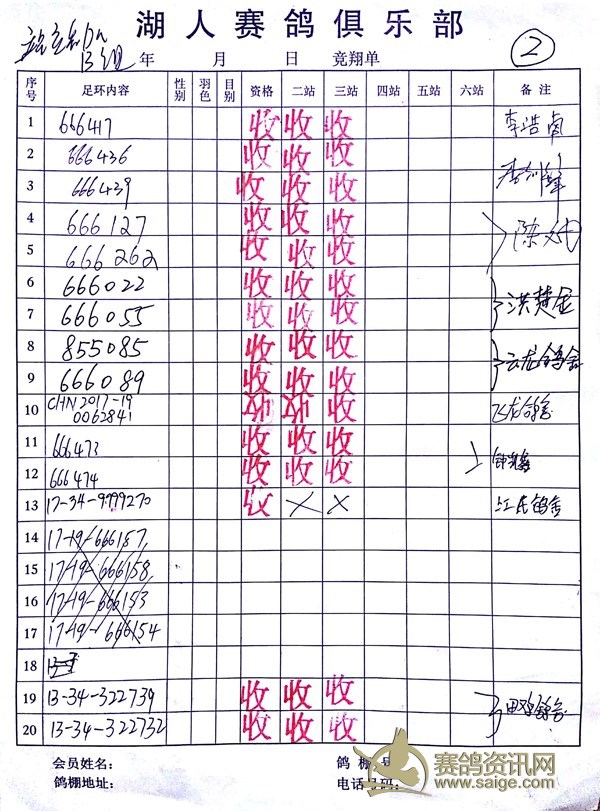 湖人赛鸽俱乐部
B组 年 月 日 竞翔单 ②
序号 足环内容 性别 羽色 目别 资格 二站 三站 四站 五站 六站 备注
1 666417 收 收 收 李浩南
2 666436 收 收 收
3 666439 收 收 收
4 666127 收 收 收
5 666262 收 收 收
6 666022 收 收 收 洪楚金
7 666055 收 收 收
8 855085 收 收 收 云龙鸽舍
9 666089 收 收 收
10 CHN2017-19 0062841 收 飞龙鸽舍
11 666473 收 收 收
12 666474 收 收 收
13 17-34-9799270 收 × × 江氏鸽舍
14 17-19-666157
15 17-19-666158
16 17-19-666153
17 17-19-666154
18
19 13-34-322739 收 收 收
20 13-34-322732 收 收 收
会员姓名: 鸽棚 号
鸽棚地址: 电话号码:
赛鸽资讯网
www.saige.com